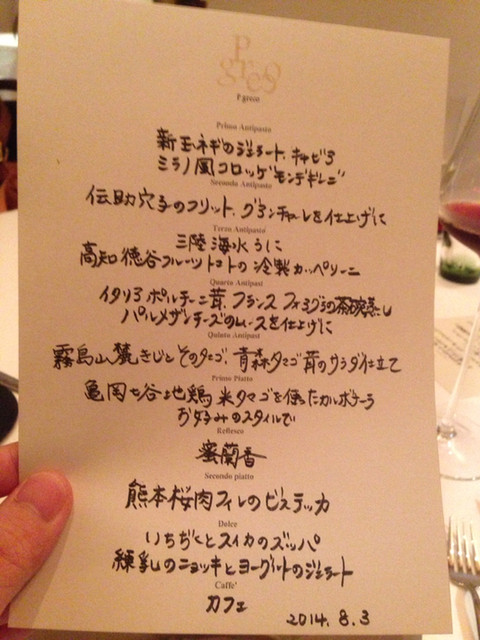 Pgreco
P greco
Primo Antipasto
新玉ネギのジェラート、キャビア
ミラノ風コロッケ"モンデギーニ"
Secondo Antipasto
伝助穴子のフリット、グアンチャーレを仕上げに
Terzo Antipasto
三陸海水うに
高知徳谷フルーツトマトの冷製カッペリーニ
Quarto Antipasto
イタリア ポルチーニ茸、フランス フォアグラの茶碗蒸し
パルメザンチーズのムースを仕上げに
Quinto Antipasto
霧島山麓きじとそのタマゴ、青森タマゴ茸のサラダ仕立て
Primo Piatto
亀岡七谷地鶏 米タマゴを使ったカルボナーラ
お好みのスタイルで
Reflesco
蜜蘭香
Secondo piatto
熊本桜肉フィレのビステッカ
Dolce
いちぢくとスイカのズッパ
練乳のニョッキとヨーグルトのジェラート
Caffe'
カフェ
2014.8.3